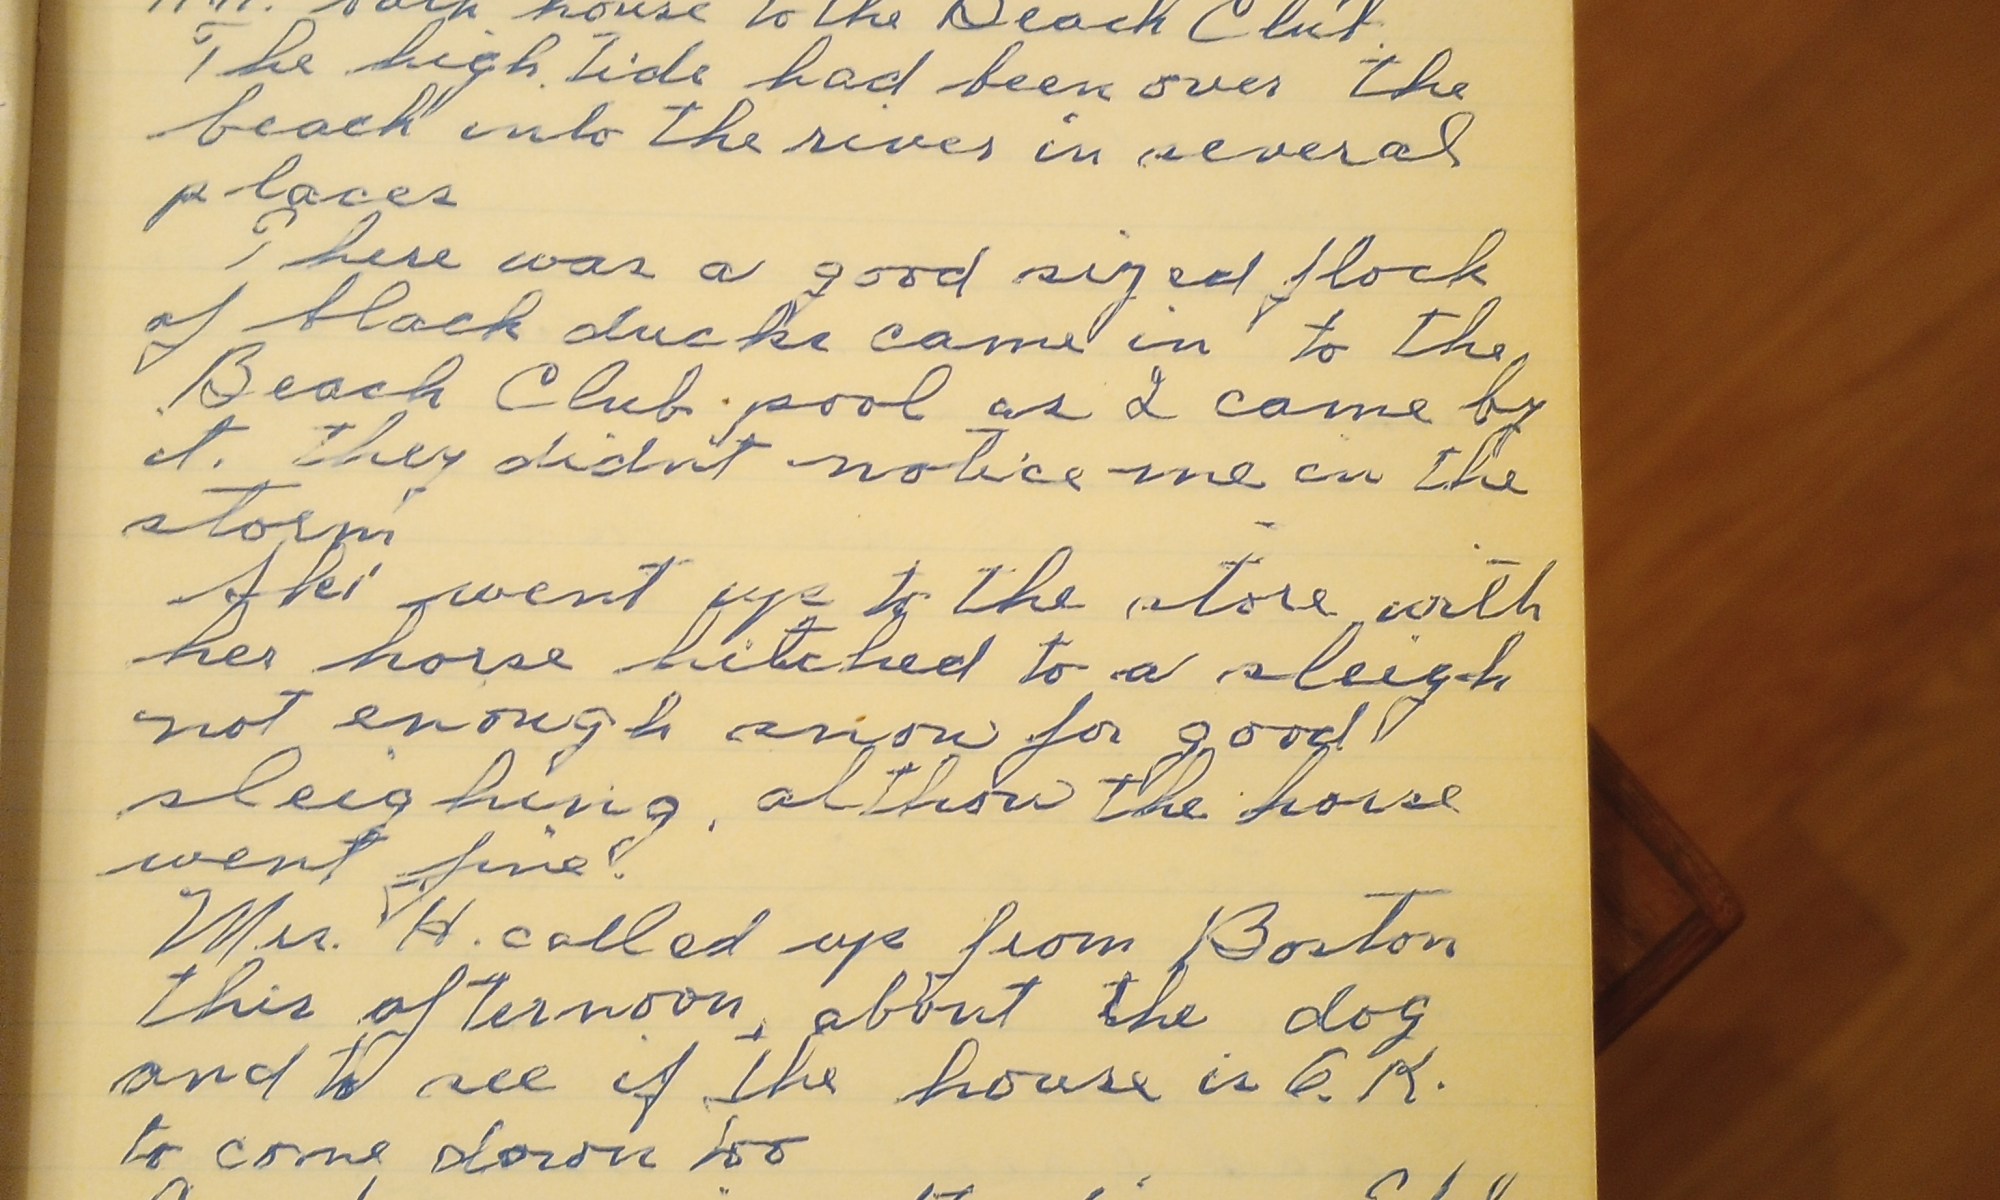 house to the Beach Club
The high tide had been over the
beach into the river in several
places
There was a good sized flock
of black ducks came in to the
Beach Club pool as I came by
it. they didn't notice me in the
storm
Ski went up to the store with
her horse hitched to a sleigh
not enough snow for good
sleighing, althow the horse
went fine.
Mrs. H. called up from Boston
this afternoon, about the dog
and to see if the house is O.K.
to come down too